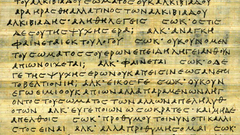 ΤΟΥΑΛΚΙΒΙΑΔΟΥΣΩΜΑΤΟΣΟΥΚΑΛΚΙΒΙΑΔΟΥ
ΑΛΚΙΒΙΑΔΗΣ ΑΛΗΘΗΛΕΓΕΙΣ ΣΩΚ ΟΣΤΙΣ
ΔΕΣΟΥΤΗΣΨΥΧΗΣΕΡΑΙ ΑΛΚ ΑΝΑΓΚΗ
ΦΑΙΝΕΤΑΙΕΚΤΟΥΛΟΓΟΥ ΣΩΚ ΟΥΚΟΥΝΟΜΕΝ
ΤΟΥΣΩΜΑΤΟΣΣΟΥΕΡΩΝΕΠΕΙΔΗΛΗΓΕΙΑΝΘΟΥΝ
ΑΠΙΩΝΟΙΧΕΤΑΙ ΑΛΚ ΦΑΙΝΕΤΑΙ ΣΩΚ ΟΔΕ
ΓΕΤΗΣΨΥΧΗΣΕΡΩΝΟΥΚΑΠΕΙΣΙΝΕΩΣΑΝΕΠΙ
ΤΟΒΕΛΤΙΟΝΙΗΙ ΑΛΚ ΕΙΚΟΣΓΕ ΣΩΚ ΟΥΚΟΥΝ
ΕΓΩΕΙΜΙΟΟΥΚΑΠΙΩΝΑΛΛΑΠΑΡΑΜΕΝΩΝΛΗΓ
ΟΝΤΟΣΤΟΥΣΩΜΑΤΟΣΤΩΝΑΛΛΩΝΑΠΕΛΗΛΥΘΟ
ΤΩΝ ΑΛΚ ΕΥΓΕΠΟΙΩΝΩΣΩΚΡΑΤΕΣ ΚΑΙΜΗΑ
ΑΠΕΛΘΟΙΣ ΣΩΚ ΠΡΟΘΥΜΟΥΤΟΙΝΥΝΟΤΙΚΑΛΛΙ
ΣΤΟΣΕΙΝΑΙ ΑΛΚ ΑΛΛΑΠΡΟΘΥΜΗΣΟΜΑΙ ΣΩΚ